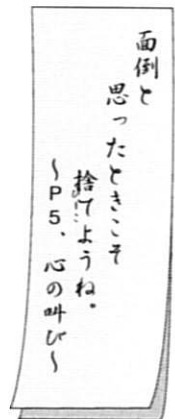 面倒と
思ったときこそ
捨てようね。
～P5、心の叫び～